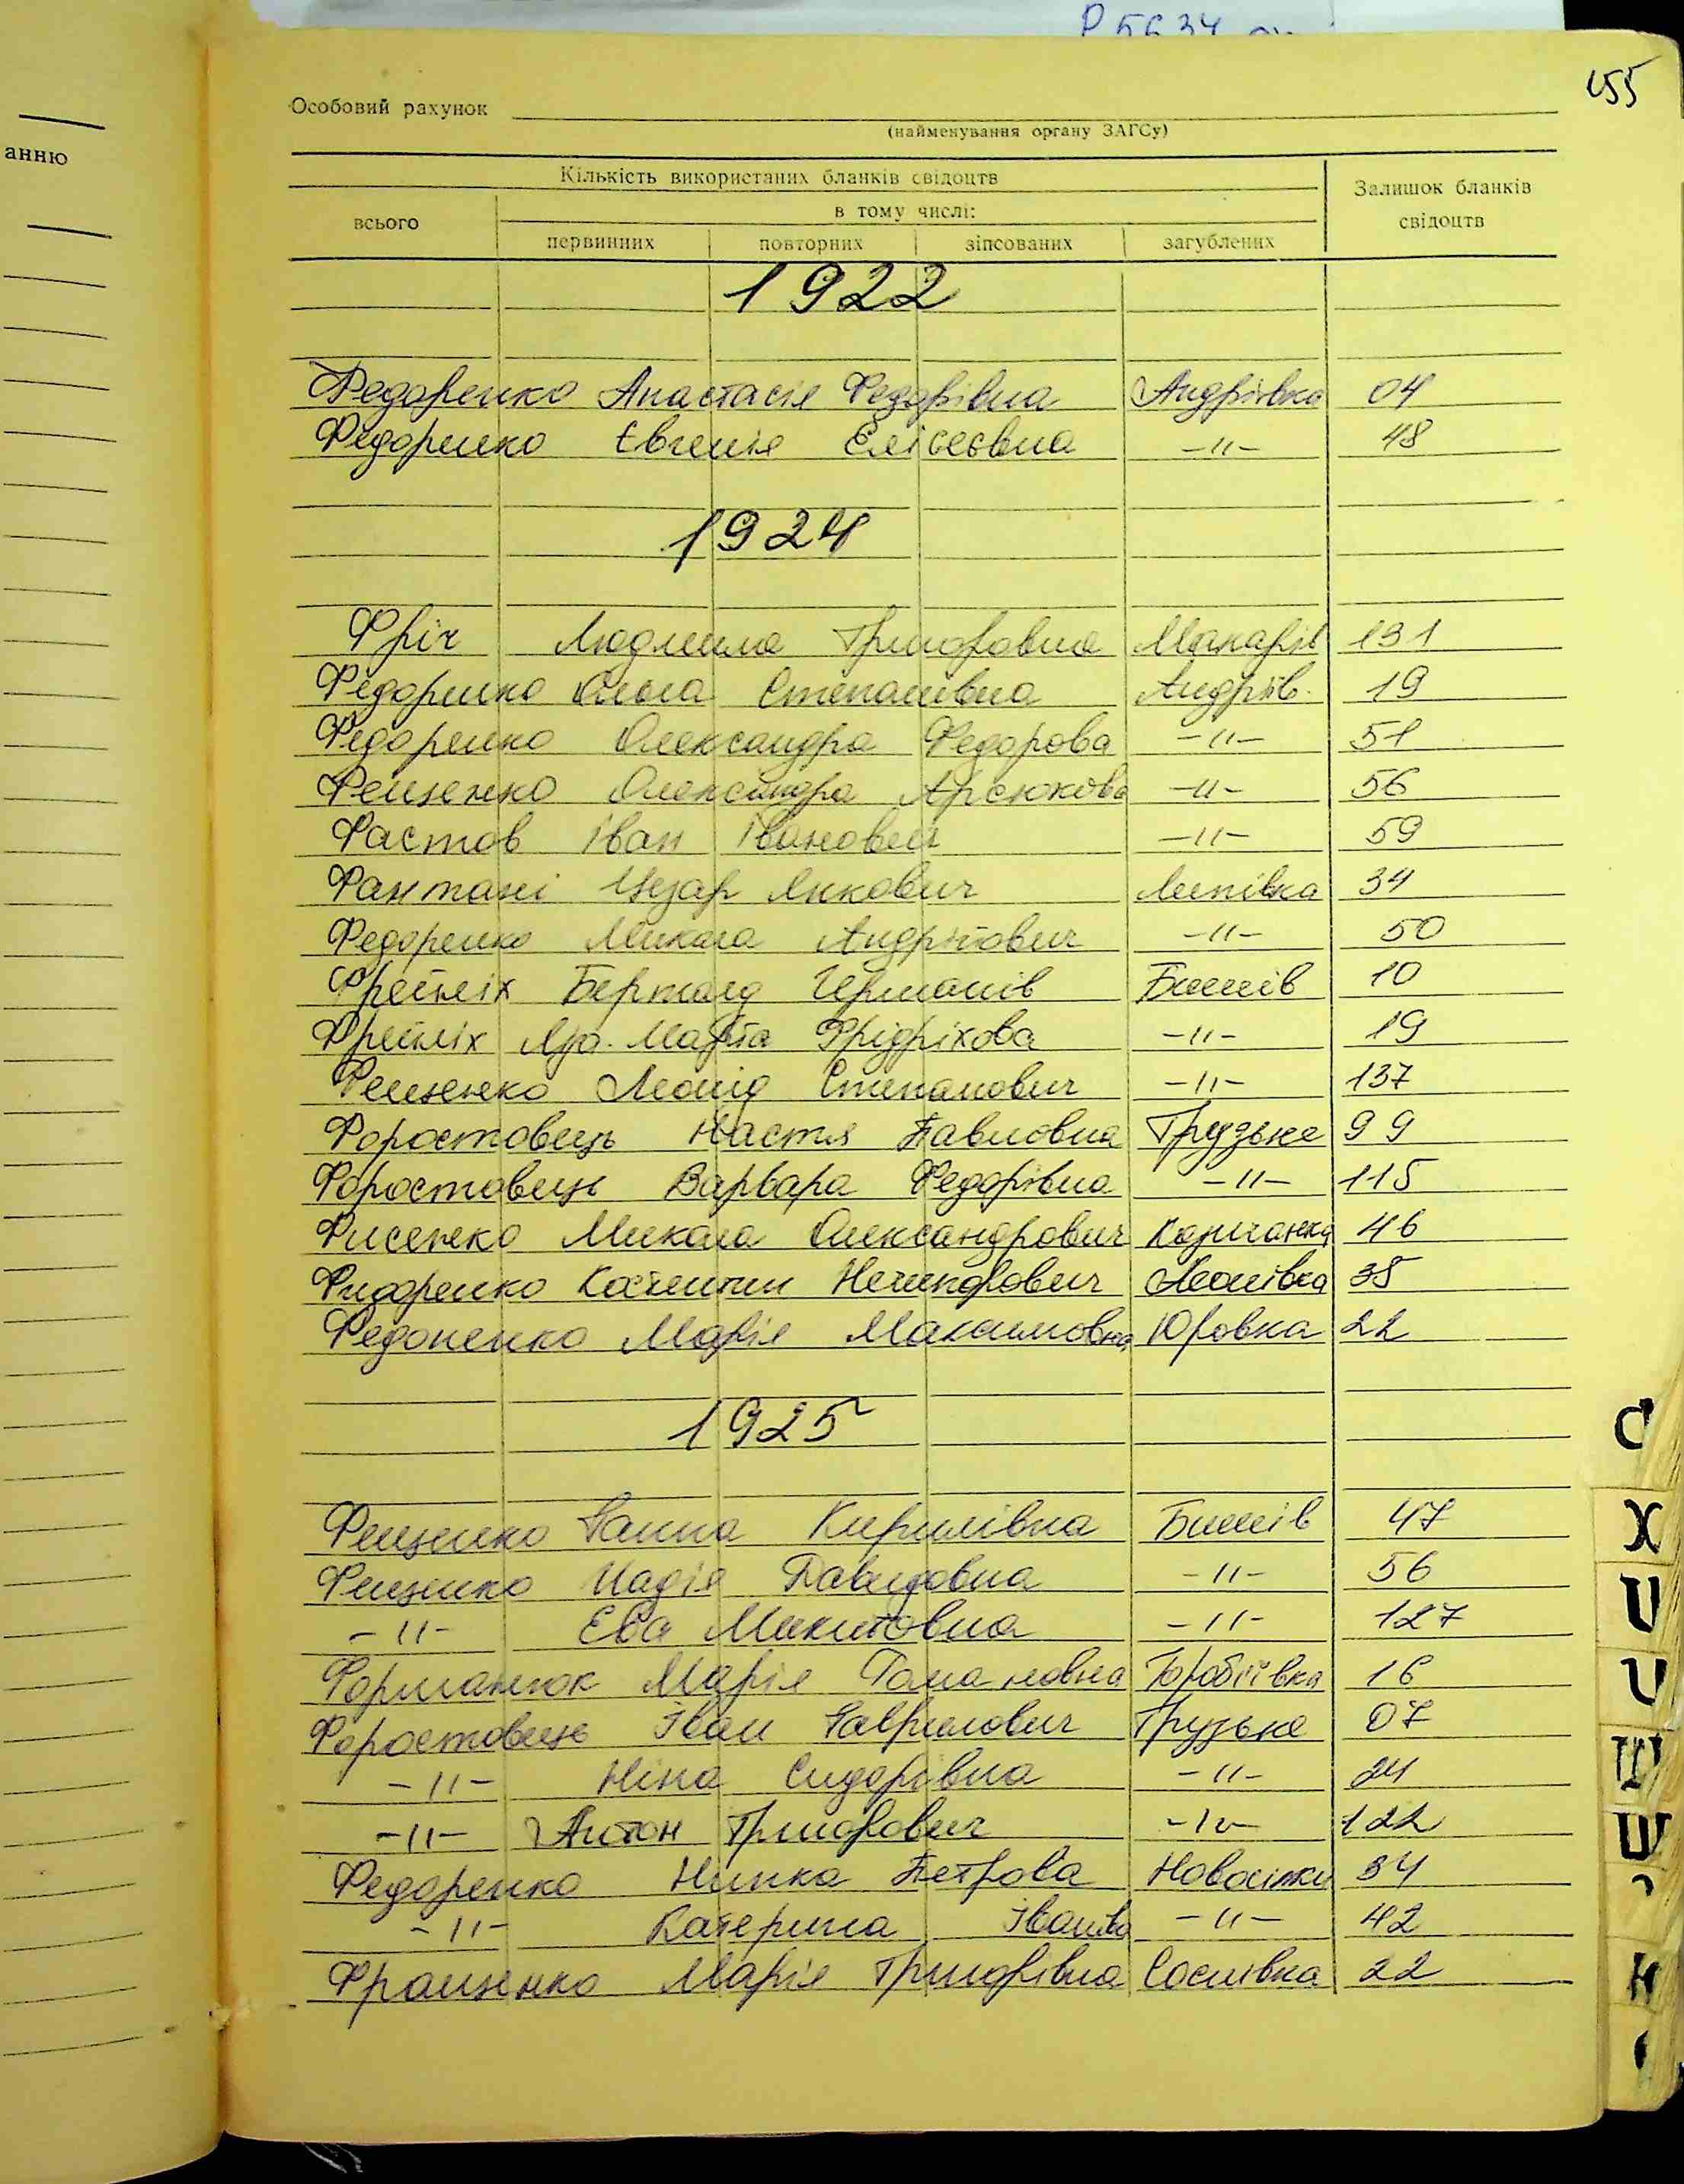 Р 5634
155
анню
Особовий рахунок
(найменування органу ЗАГСу)
Кількість використаних бланків свідоцтв
Залишок бланків свідоцтв
всього
в тому числі:
первинних повторних зіпсованих загублених
1922
Федоренко Анастасія Федорівна Андрівка 04
Федоренко Євгенія Елісеєвна -11- 48
1924
Фріч Людмила Григоровна Макарів 131
Федоренко Ольга Степанівна Андріїв. 19
Федоренко Олександра Федорова -11- 51
Фещенко Олександра Арсюкова -11- 56
Фастов Іван Іванович -11- 59
Фантані Цезар Янкович Липівка 34
Федоренко Микола Андрійович -11- 50
Фрейліх Бертольд Германів Бишів 10
Фрейліх Марта Фрідріхова -11- 19
Фещенко Леонід Степанович -11- 137
Форостовець Настя Павловна Грузьке 99
Форостовець Варвара Федорівна -11- 115
Фисенко Микола Олександрович 46
Фидоренко Костянтин Нечипорович Леонівка 38
Федоненко Марія Максимовна Юровка 22
1925
Фещенко Ганна Кирилівна Бишів 47
Фещенко Надія Давидовна -11- 56
-11- Ева Микитовна -11- 127
Форманюк Марія Романовна Горобіївка 16
Форостовець Іван Гаврилович Грузьке 07
-11- Ніна Сидорівна -11- 24
-11- Антон Григорович -11- 122
Федоренко Нинка Петрова Новосілки 34
-11- Катерина Іванівна -11- 42
Фрощенко Марія Григорівна Соснівка 22
С
Х
Ц
Ч
Щ
Ш